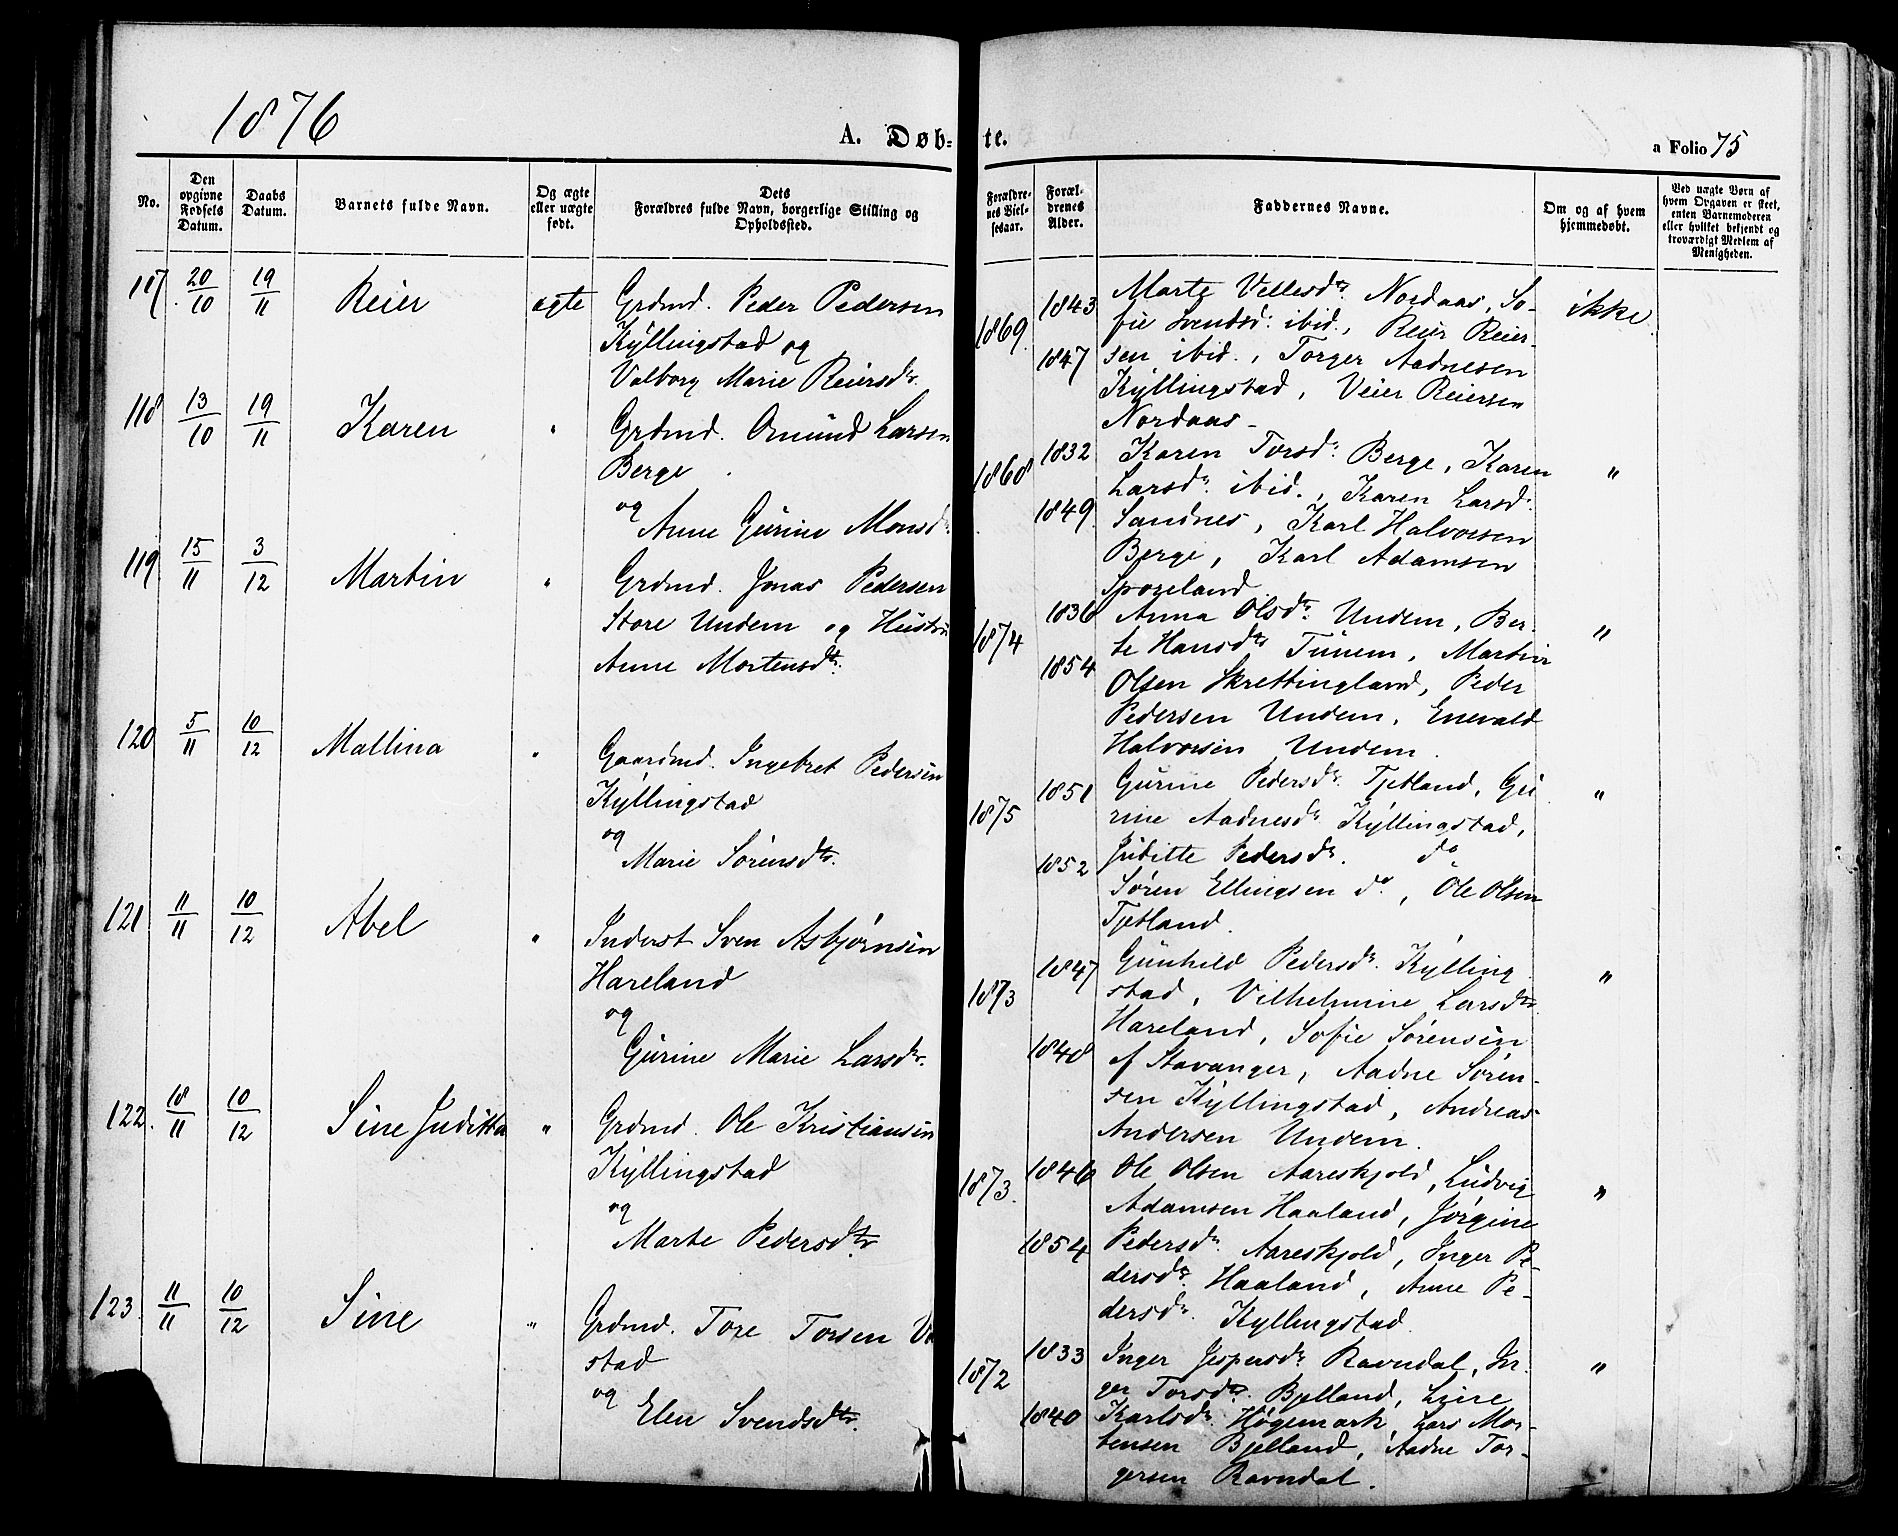 1876
A. Døb- te.
a Folio 75
No.
Den opgivne Fødsels Datum.
Daabs Datum.
Barnets fulde Navn.
Og ægte eller uægte født.
Dets Forældres fulde Navn, borgerlige Stilling og Opholdssted.
Forældrenes Vielsesaar.
Forældrenes Alder.
Faddernes Navne.
Om og af hvem hjemmedøbt.
Ved uægte Børn af hvem Opgaven er skeet, enten Barnemoderen eller hvilket bekjendt og troværdigt Medlem af Menigheden.
117 20/10 19/11 Reier ægte Grdmd. Peder Pedersen
Kyllingstad og
Valborg Marie Reiersdtr.
118 13/10 19/11 Karen " Grdmd. Omund Larsen
Berge
og
Anne Gurine Monsd
119 15/11 3/12 Martin " Grdmd. Jonas Pedersen
Store Undem og Hustru
Anne Mortensdtr.
120 5/11 10/12 Mallina " Gaardmd. Ingebret Pedersen
Kyllingstad
og
Marie Sørensdtr.
121 11/11 10/12 Abel " Inderst Sven Asbjørnsen
Hareland
og
Gurine Marie Larsdtr.
122. 18/11 10/12 Sine Juditta " Grdmd. Ole Kristiansen
Kyllingstad
og
Marte Pedersdtr.
123 11/11 10/12 Sine " Grdmd. Tore Torsen
stad
og
Elen Svendsdtr.
1869. 1843 1847
Marte Vellesdtr. Nordaas, So-
fie Svendsd. ibid., Reier Reier-
sen ibid., Torger Aadnesen
Kyllingstad, Veier Reiersen
Nordaas-
ikke
1868 1832 1849.
Karen Torsd. Berge, Karen
Larsdr. ibid., Karen Larsd.
Sandnes, Karl Halvorsen
Berge, Karl Adamsen
Sporeland.
"
1874 1836 1854
Anna Olsdtr. Undem, Ber-
te Hansdtr. Tunem, Martin
Olsen Skrettingland, Peder
Pedersen Undem, Enevald
Halvorsen Undem.
"
1875 1851 1852
Gurine Pedersdr. Tjetland, Gu
rine Aadnesdr. Kyllingstad,
Juditte Pedersdr. do
Søren Ellingsen do., Ole Olsen
Tjetland.
"
1873 1847 1840
Gunhild Pedersdr. Kylling
stad, Vilhelmine Larsdtr.
Hareland, Sofie Sørensen
af Stavanger, Aadne Søren-
sen Kyllingstad, Andreas
Andersen Undem.
"
1873. 1846 1854
Ole Olsen Aareskjold, Ludvig
Adamsen Haaland, Jørgine
Pedersdr. Aareskjold, Inger Pe-
dersdr. Haaland, Anne Pe-
dersdr. Kyllingstad.
"
1872 1833 1840
Inger Jespersdr. Ravndal, In-
ger Torsdtr. Bjelland, Line
Karlsdr. Høgemark, Lars Mor-
tensen Bjelland, Aadne Tor-
gersen Ravndal.
"